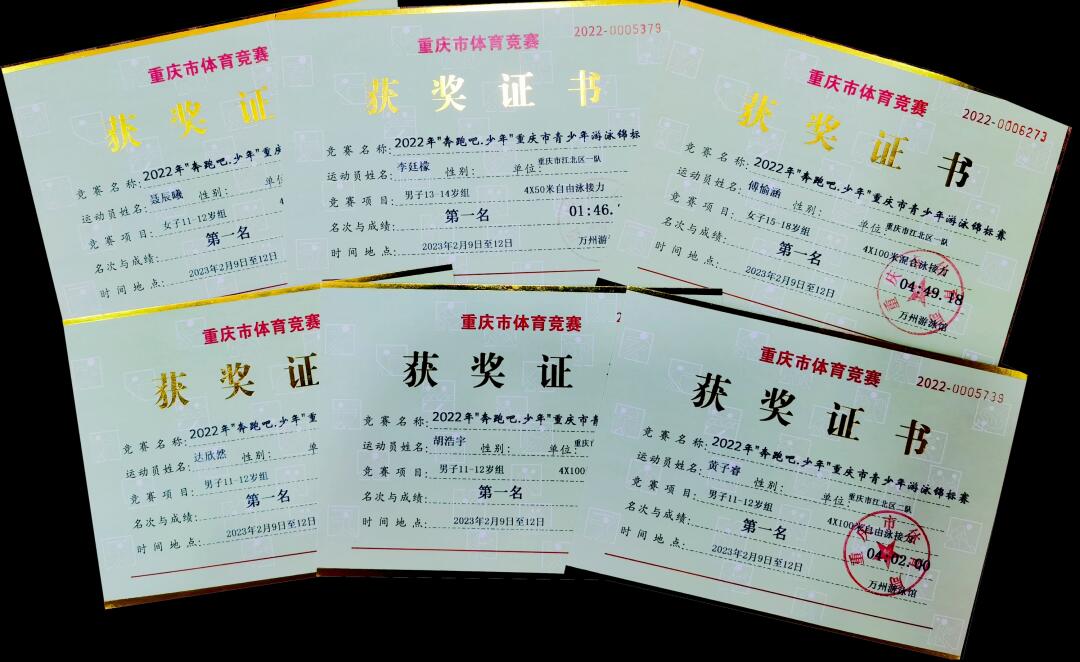 重庆市体育竞赛
获奖证
竞赛名称: 2022年"奔跑吧.少年"重庆
运动员姓名: 聂辰曦 性别: 单位
竞赛项目: 女子11-12岁组 4
名次与成绩: 第一名
时间地点: 2023年2月9日至12日
重庆市体育竞赛
2022-0005379
获奖证书
竞赛名称: 2022年"奔跑吧.少年"重庆市青少年游泳锦标
运动员姓名: 李廷檬 性别: 单位: 重庆市江北区一队
竞赛项目: 男子13-14岁组 4X50米自由泳接力
名次与成绩: 第一名 01:46.
时间地点: 2023年2月9日至12日 万州游
重庆市体育竞赛
2022-0006273
获奖证书
竞赛名称: 2022年"奔跑吧.少年"重庆市青少年游泳锦标赛
运动员姓名: 傅愉涵 性别: 单位: 重庆市江北区一队
竞赛项目: 女子15-18岁组 4X100米混合泳接力
名次与成绩: 第一名 04:49.18
时间地点: 2023年2月9日至12日 万州游泳馆
重庆市体育竞赛
获奖证
竞赛名称: 2022年"奔跑吧.少年"重
运动员姓名: 达欣然 性别: 单
竞赛项目: 男子11-12岁组
名次与成绩: 第一名
时间地点: 2023年2月9日至12日
重庆市体育竞赛
获奖证
竞赛名称: 2022年"奔跑吧.少年"重庆市青
运动员姓名: 胡浩宇 性别: 单位: 重庆
竞赛项目: 男子11-12岁组 4X100
名次与成绩: 第一名
时间地点: 2023年2月9日至12日
重庆市体育竞赛
2022-0005739
获奖证书
竞赛名称: 2022年"奔跑吧.少年"重庆市青少年游泳锦标赛
运动员姓名: 黄子睿 性别: 单位: 重庆市江北区二队
竞赛项目: 男子11-12岁组 4X100米自由泳接力
名次与成绩: 第一名 04:02.00
时间地点: 2023年2月9日至12日 万州游泳馆